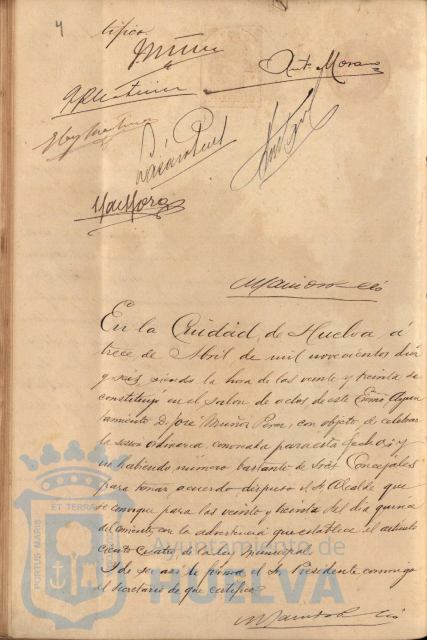 4
tifico.
Muñoz
Ant. Morano
H. de Mora
En la Ciudad de Huelva á
trece de Abril de mil novecientos diez
y seis, siendo la hora de las veinte y treinta se
constituyó en el salon de actos de este Excmo Ayun
tamiento D. José Muñoz Perez, con objeto de celebrar
la sesion ordinaria, convocada para esta fecha; y
no habiendo número bastante de Sres Concejales
para tomar acuerdo, dispuso el Sr Alcalde que
se convoque para las veinte y treinta del dia quince
del corriente, con la advertencia que establece el articulo
ciento cuatro de la ley municipal.
Y de ser asi lo firma el Sr Presidente conmigo
el Secretario de que certifico.
PORTUS MARIS
ET TERRAE
Ayuntamiento de
HUELVA